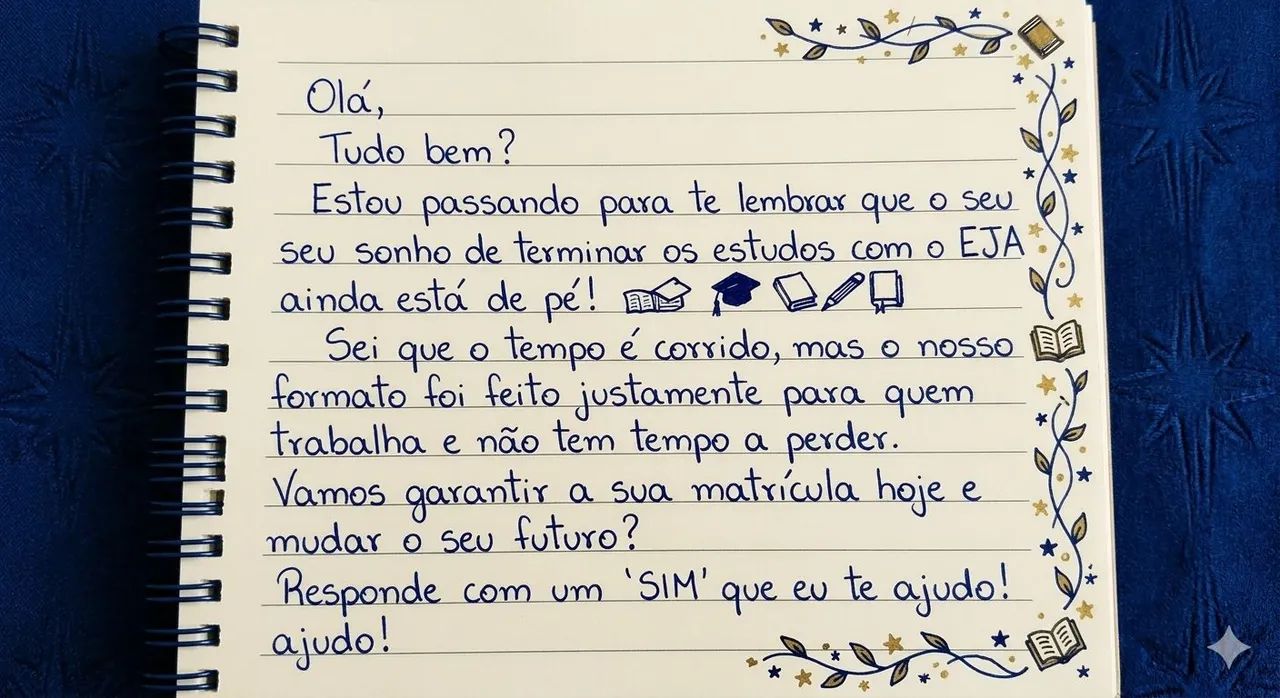 Olá,
Tudo bem?
Estou passando para te lembrar que o seu
seu sonho de terminar os estudos com o EJA
ainda está de pé!
Sei que o tempo é corrido, mas o nosso
formato foi feito justamente para quem
trabalha e não tem tempo a perder.
Vamos garantir a sua matrícula hoje e
mudar o seu futuro?
Responde com um 'SIM' que eu te ajudo!
ajudo!